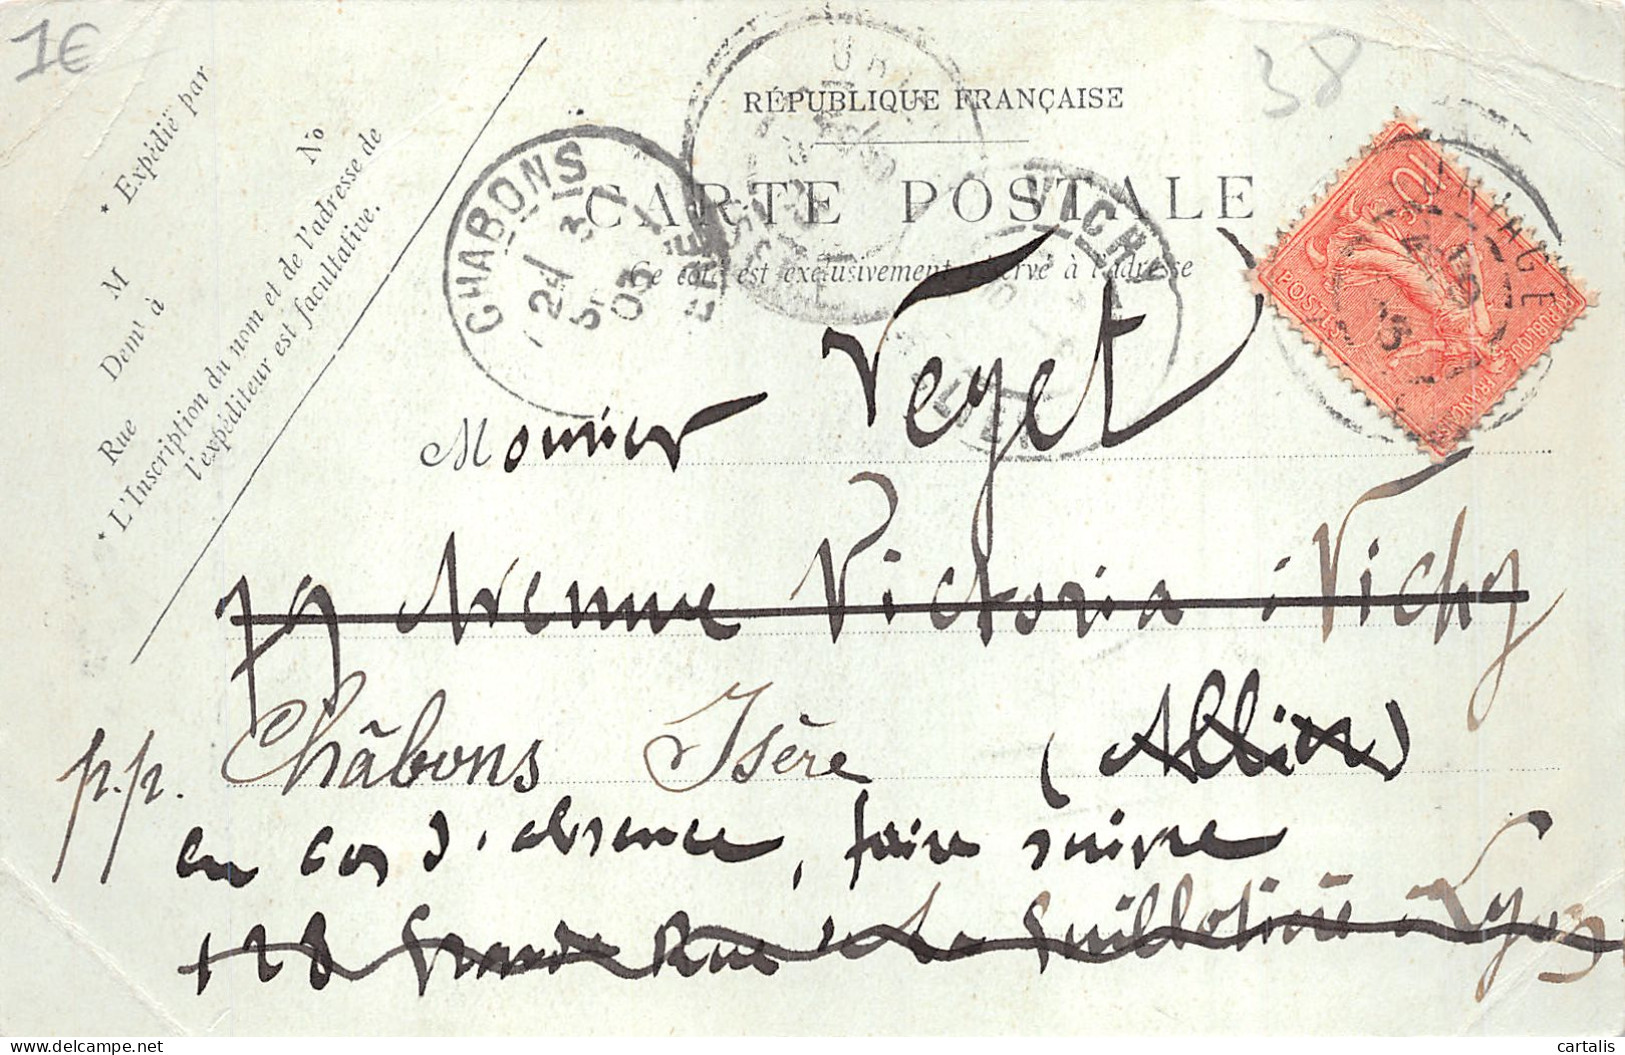 1€
38
RÉPUBLIQUE FRANÇAISE
CARTE POSTALE
Ce côté est exclusivement réservé à l'adresse
* Expédié par
M No
Dem à
Rue
* L'Inscription du nom et de l'adresse de
l'expéditeur est facultative.
CHABONS
ISÈRE
VICHY
ALLIER
URIAGE
10
POSTES
RÉPUBLIQUE FRANÇAISE
Monsieur Veyet
79 Avenue Victoria à Vichy
Châbons Isère (Allier)
p.p.
en cas d'absence, faire suivre
128 Grande Rue de la Guillotière à Lyon
www.delcampe.net
cartalis